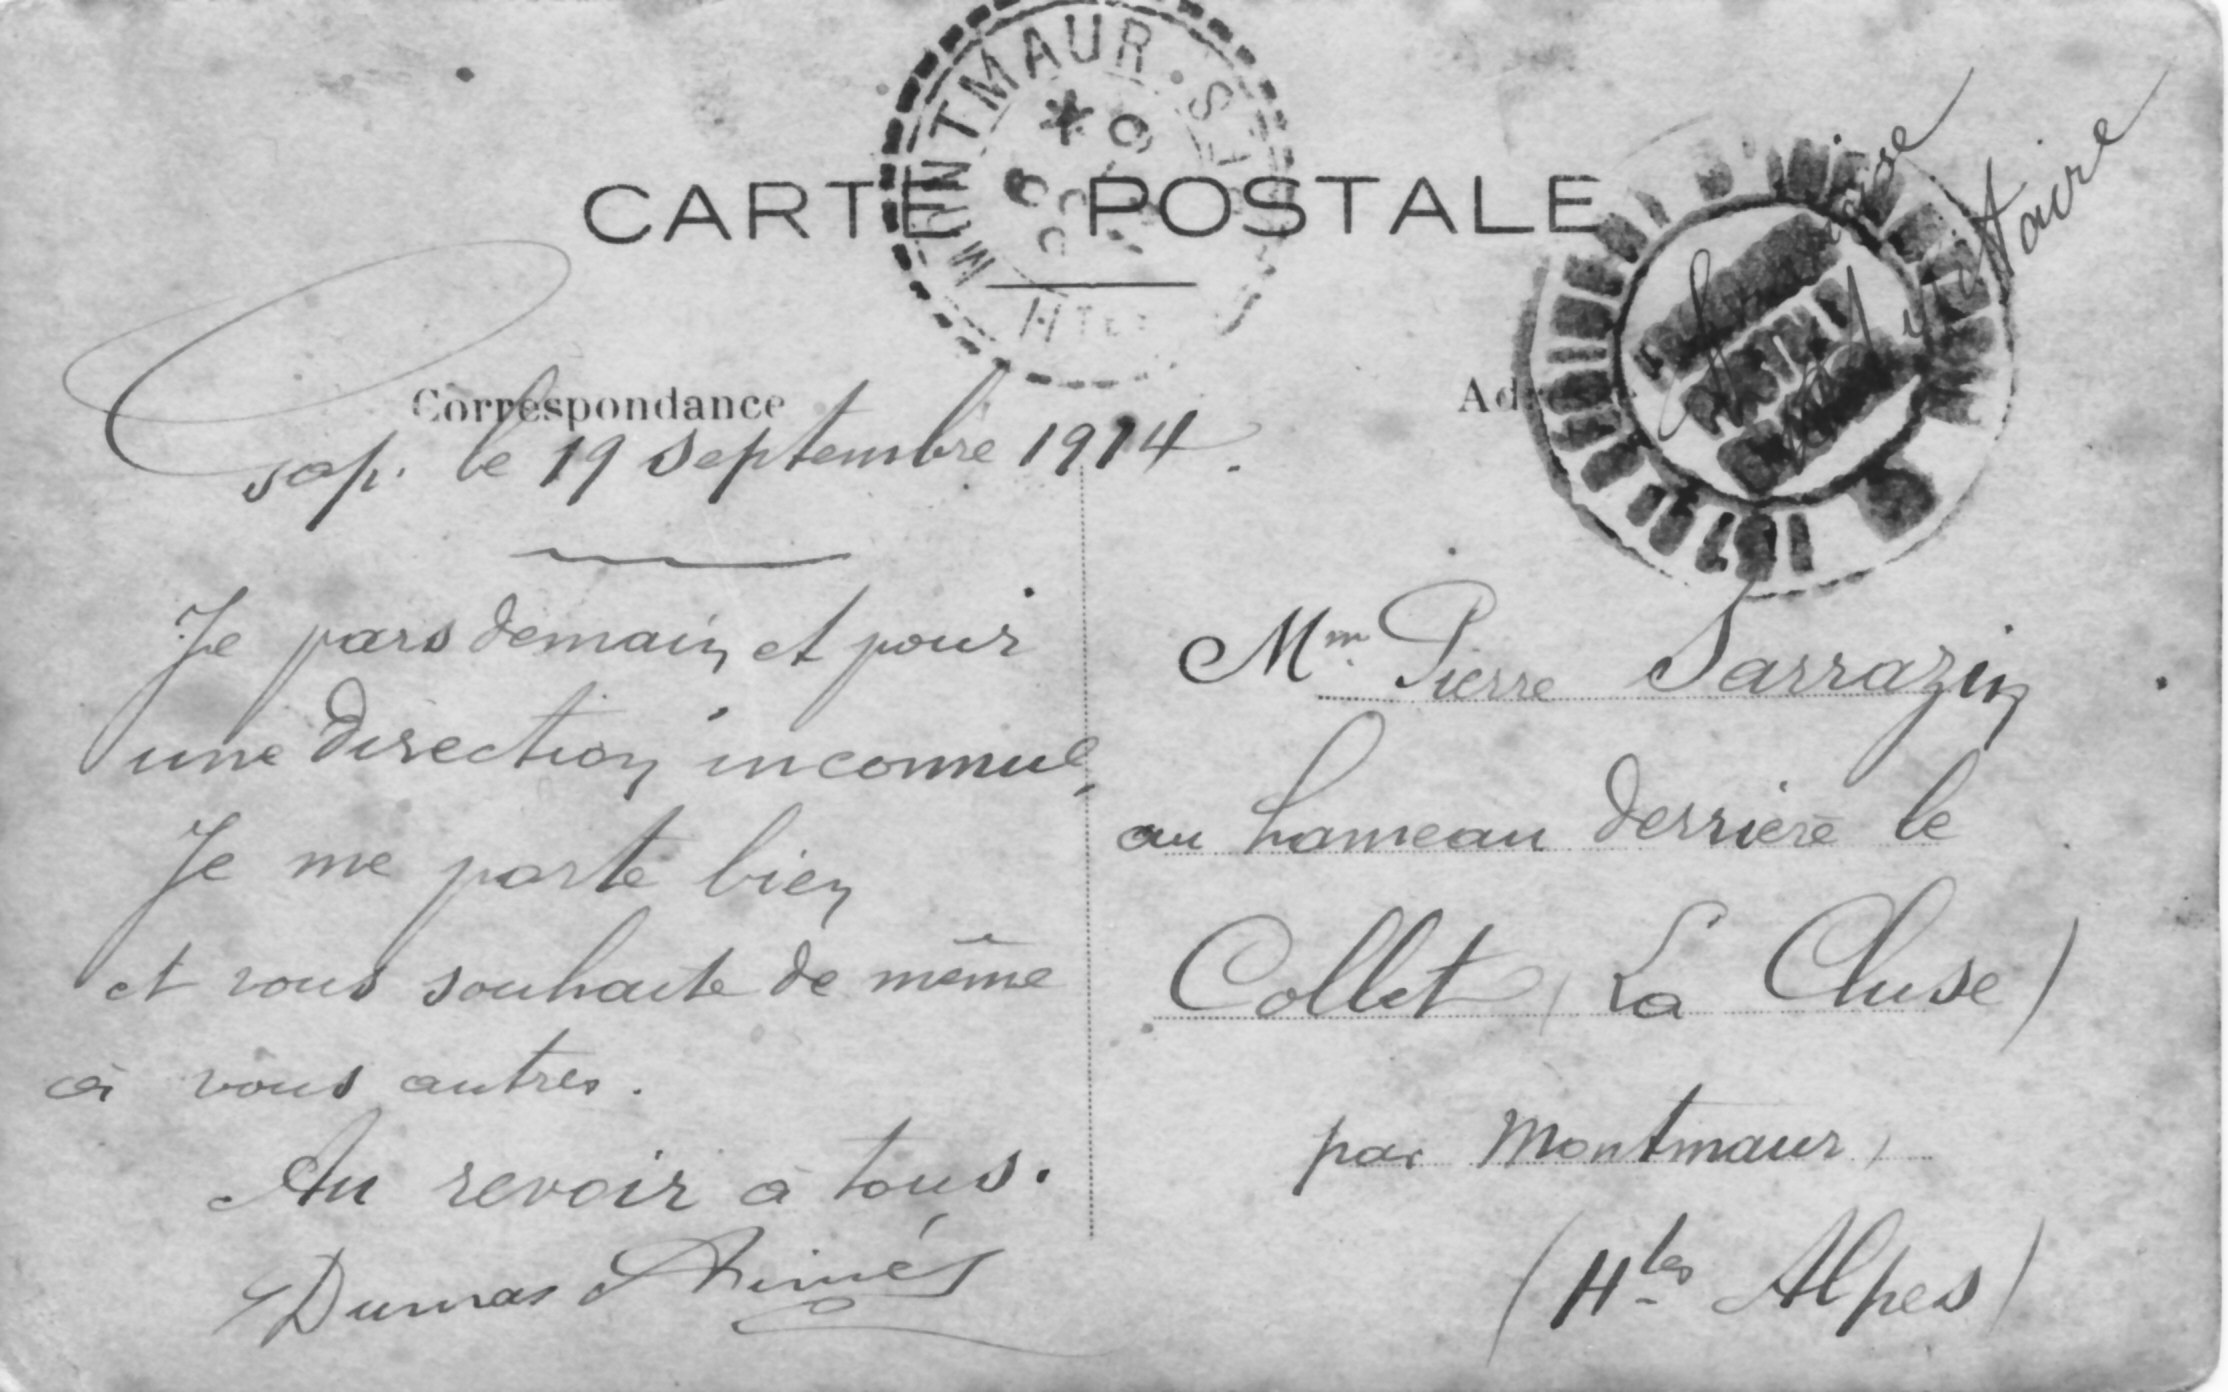 MONTMAUR
Htes
CARTE POSTALE
Correspondance
Gap. le 19 septembre 1914.
Je pars demain et pour
une direction inconnue,
Je me porte bien
et vous souhaite de même
à vous autres.
Au revoir à tous.
Dumas Aimés
Mm Pierre Sarrazin
au hameau derrière le
Collet (La Cluse)
par Montmaur,
(Htes Alpes)